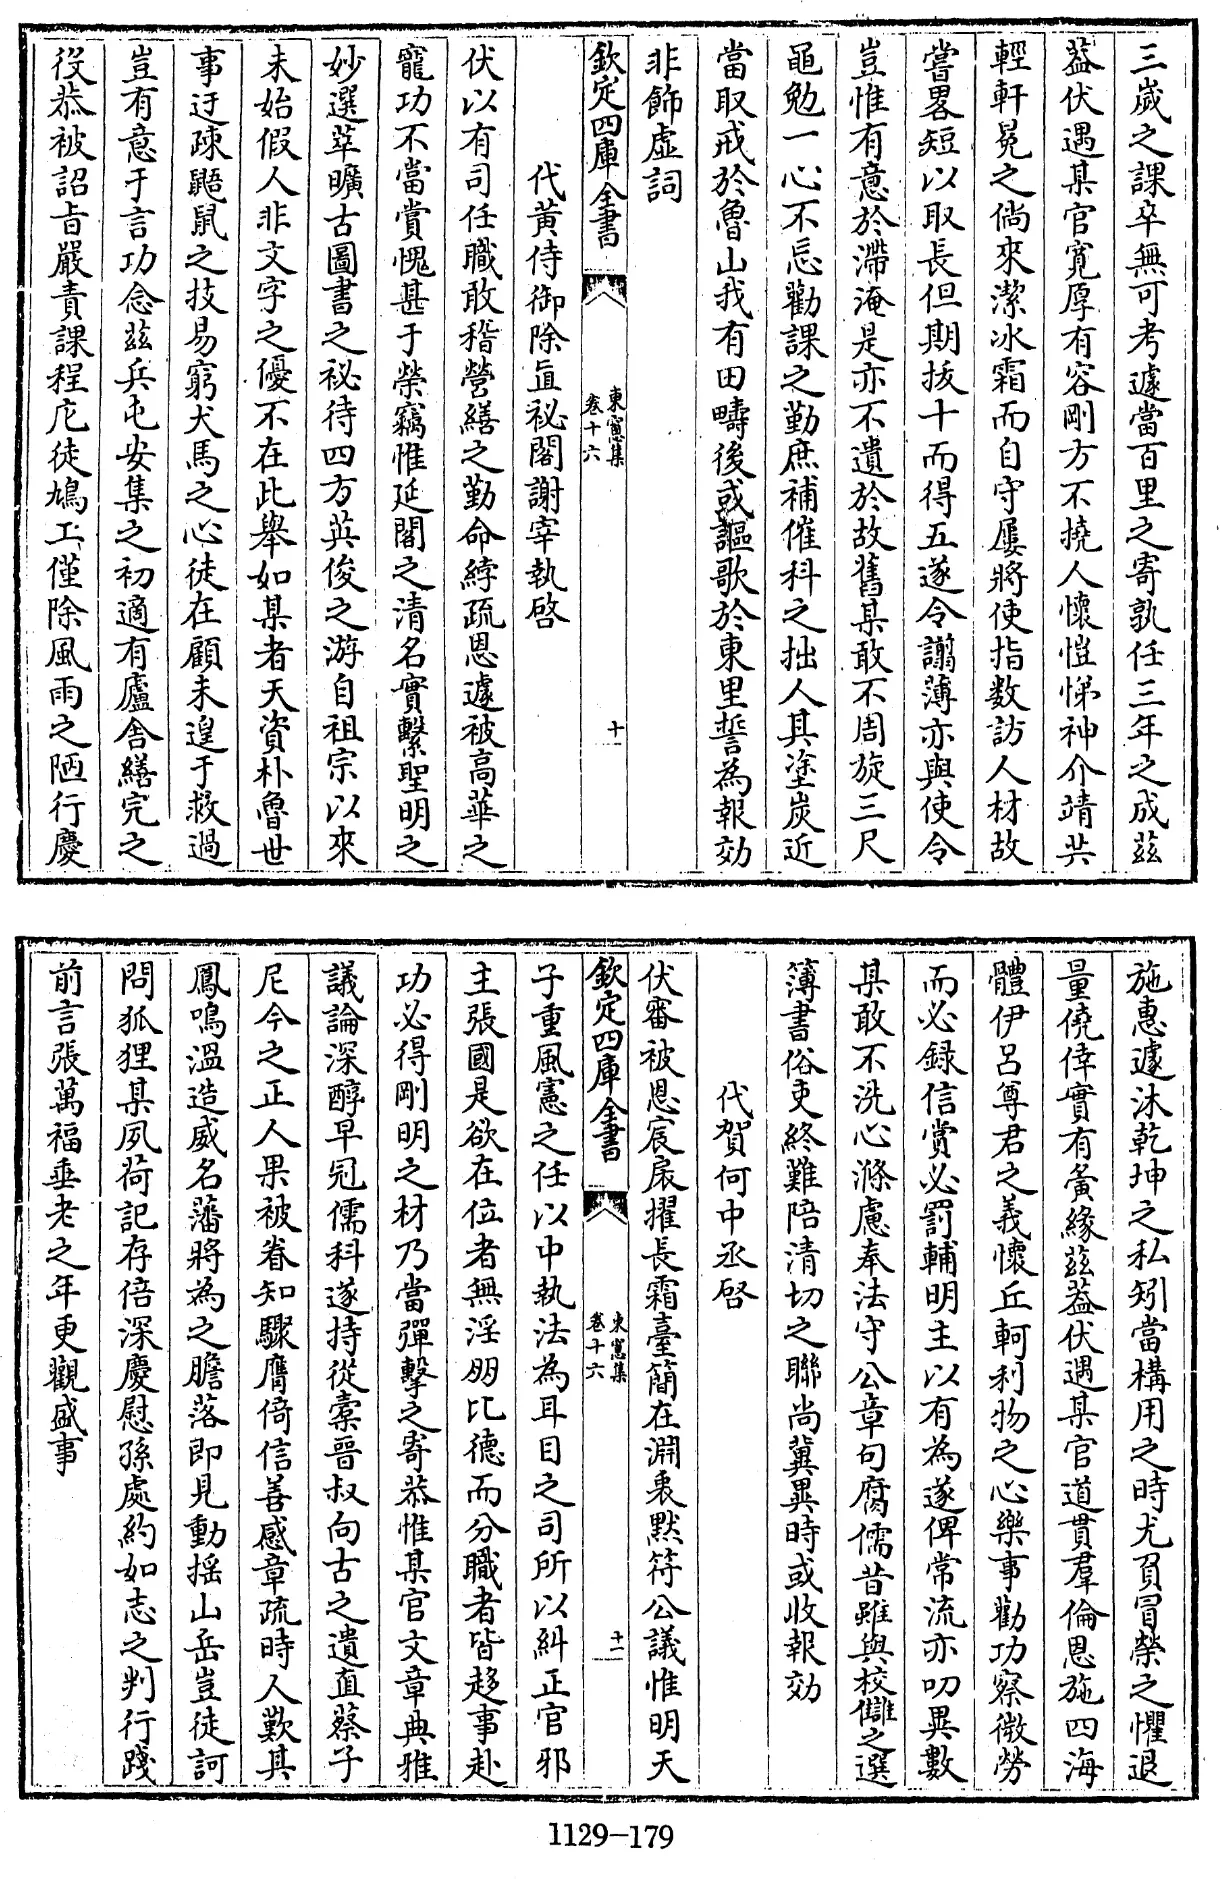 三歲之課卒無可考遽當百里之寄孰任三年之成茲
蓋伏遇某官寛厚有容剛方不撓人懷愷悌神介靖共
輕軒冕之倘來潔冰霜而自守屢將使指數訪人材故
嘗畧短以取長但期拔十而得五遂令譾薄亦與使令
豈惟有意於滯淹是亦不遺於故舊某敢不周旋三尺
黽勉一心不忘勸課之勤庶補催科之拙人其塗炭近
當取戒於魯山我有田疇後或謳歌於東里誓為報効
非飾虛詞
欽定四庫全書
東窻集
卷十六
十
代黃侍御除直祕閣謝宰執啓
伏以有司任職敢稽營繕之勤命綍疏恩遽被高華之
寵功不當賞愧甚于榮竊惟延閣之清名實繫聖明之
妙選萃曠古圖書之祕待四方英俊之游自祖宗以來
未始假人非文字之優不在此舉如某者天資朴魯世
事迂疎鼯鼠之技易窮犬馬之心徒在顧未遑于救過
豈有意于言功念茲兵屯安集之初適有廬舍繕完之
役恭被詔旨嚴責課程庀徒鳩工僅除風雨之陋行慶
施惠遽沐乾坤之私矧當構用之時尤負冒榮之懼退
量僥倖實有夤緣茲蓋伏遇某官道貫羣倫恩施四海
體伊吕尊君之義懷丘軻利物之心樂事勸功察微勞
而必録信賞必罰輔明主以有為遂俾常流亦叨異數
某敢不洗心滌慮奉法守公章句腐儒昔雖與校讎之選
簿書俗吏終難陪清切之聯尚冀異時或收報効
代賀何中丞啓
伏審被恩宸扆擢長霜臺簡在淵衷默符公議惟明天
欽定四庫全書
東窻集
卷十六
十一
子重風憲之任以中執法為耳目之司所以糾正官邪
主張國是欲在位者無淫朋比德而分職者皆趍事赴
功必得剛明之材乃當彈擊之寄恭惟某官文章典雅
議論深醇早冠儒科遂持從橐晉叔向古之遺直蔡子
尼今之正人果被眷知驟膺倚信善感章疏時人歎其
鳳鳴溫造威名藩將為之膽落即見動揺山岳豈徒訶
問狐狸某夙荷記存倍深慶慰孫處約如志之判行踐
前言張萬福垂老之年更觀盛事
1129-179